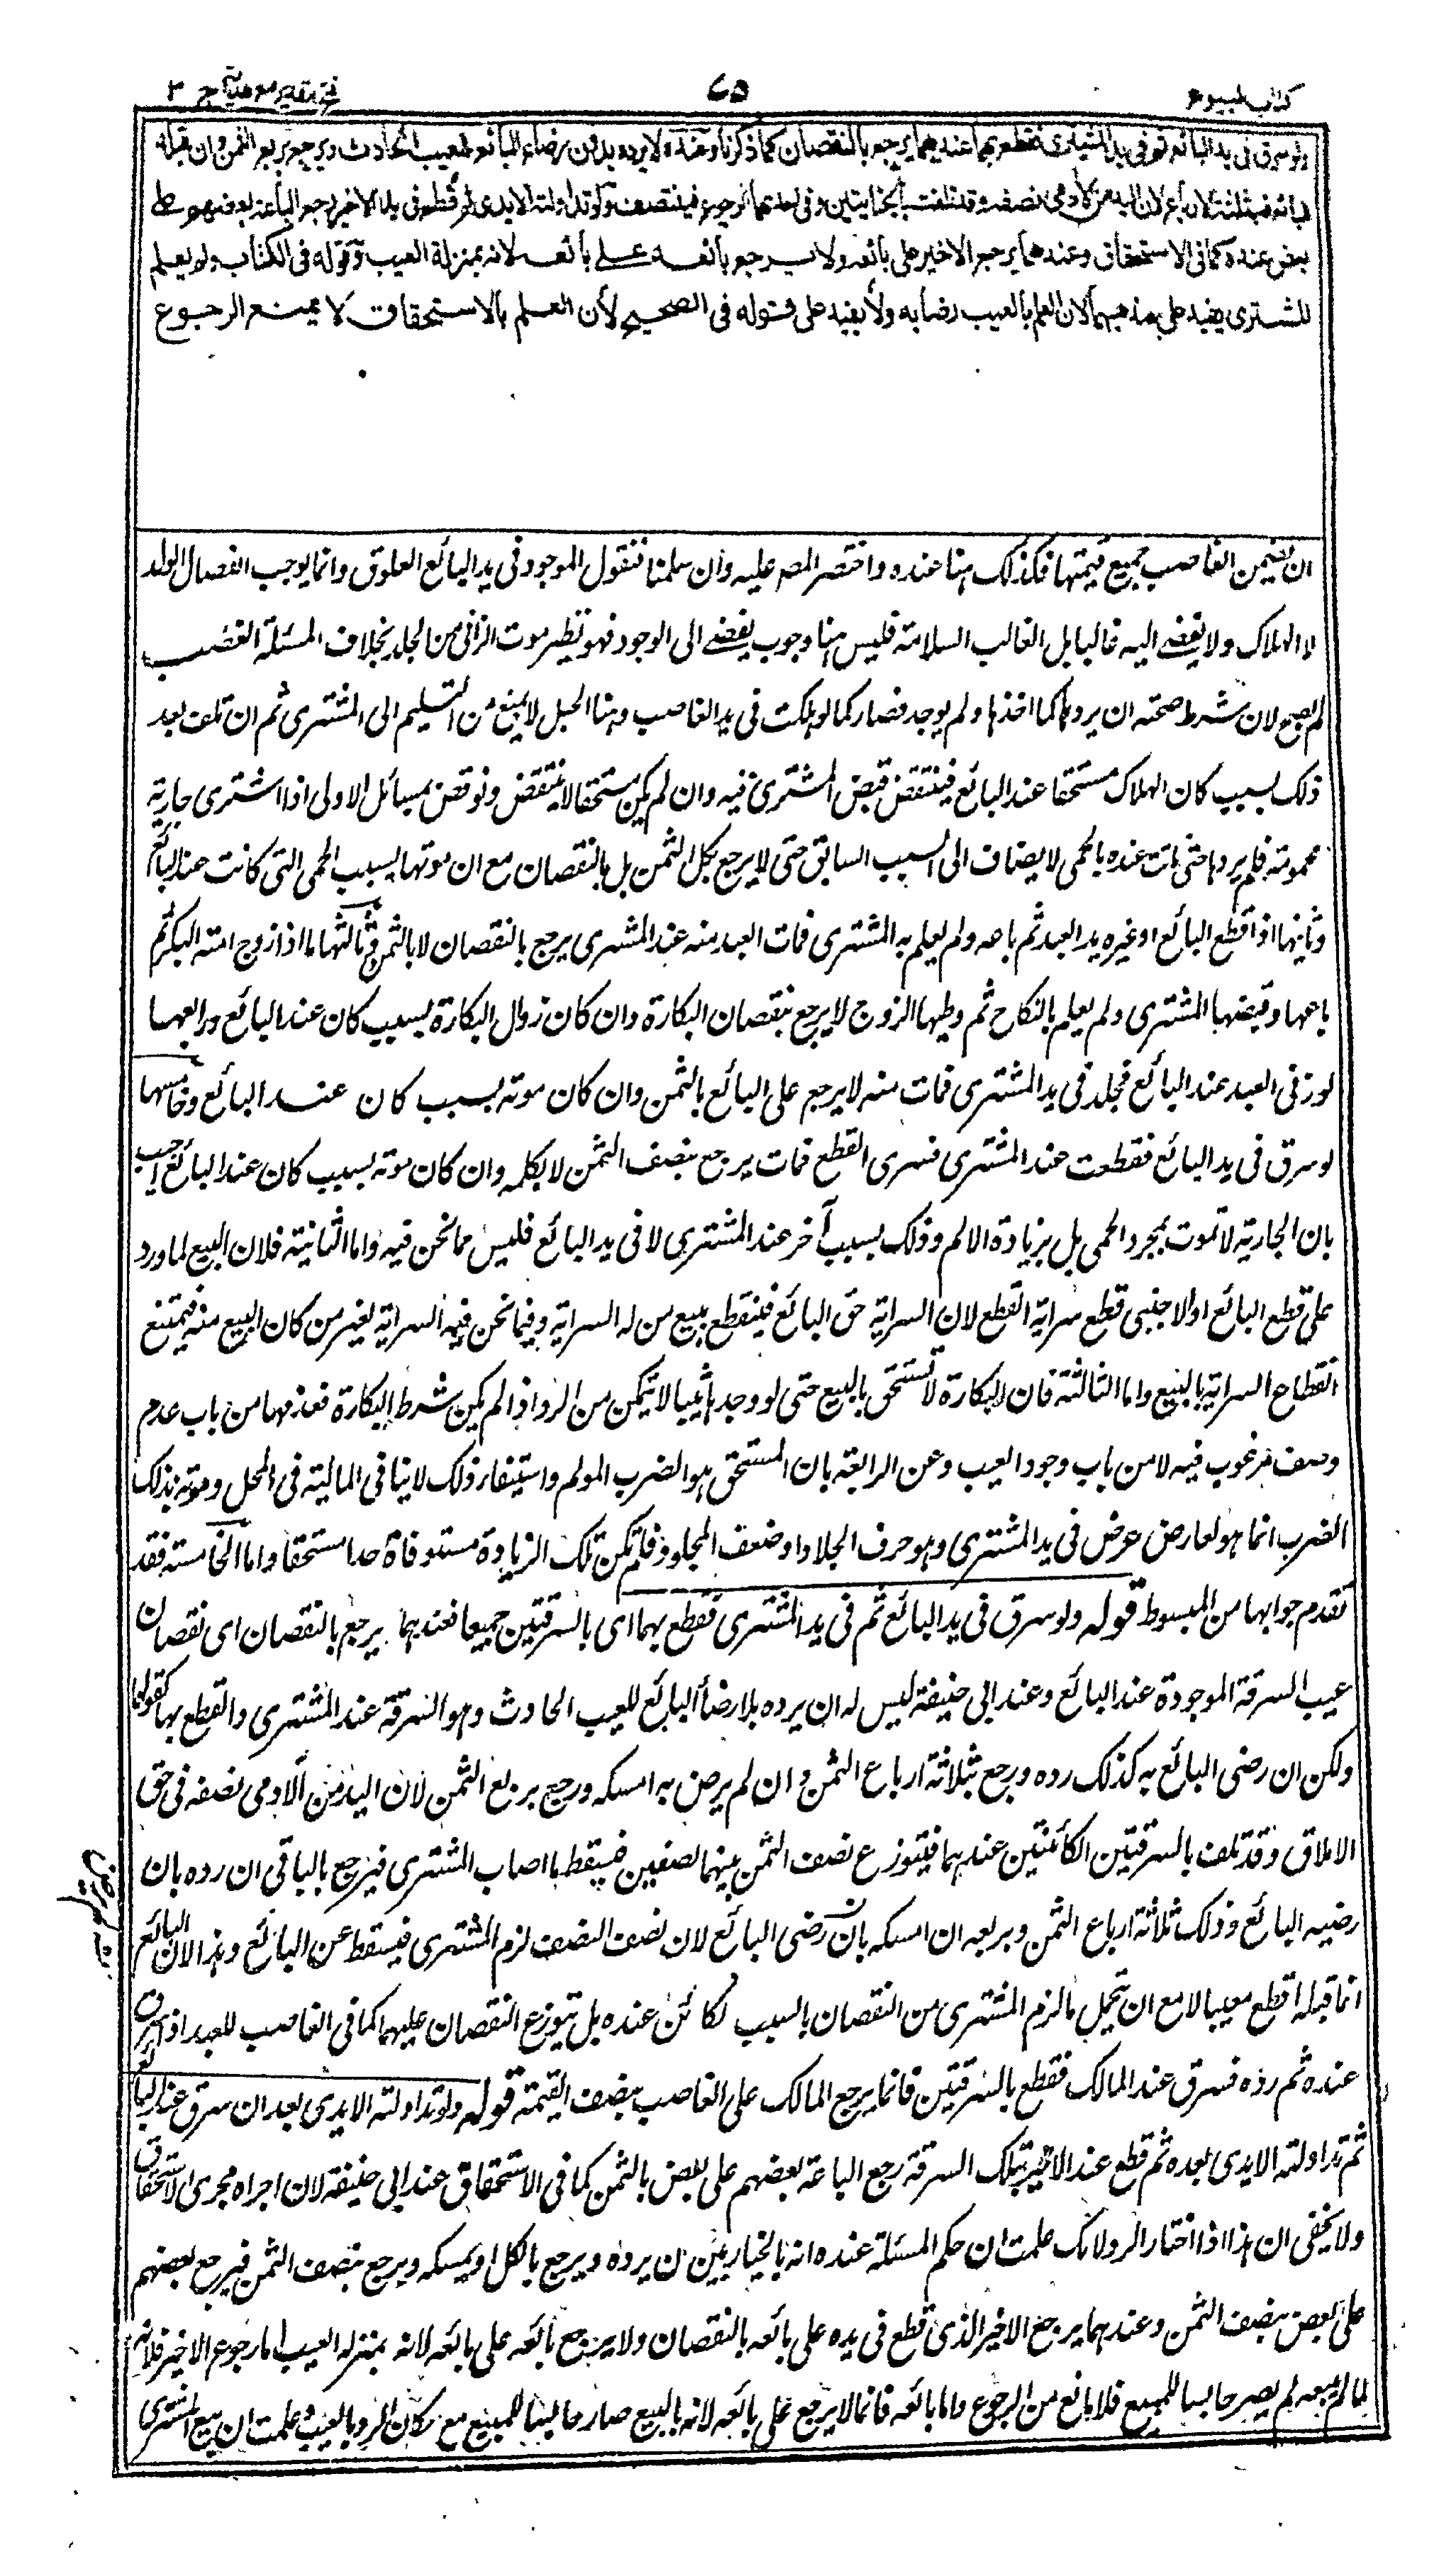 كتاب البيوع
٧٥
فتح القدير مع هداية ج ٣
ولو سرق في يد البائع ثم في يد المشتري فقطع بهما عندهما يرجع بالنقصان كما ذكرنا وعنده لا يرده بدون رضاء البائع للعيب الحادث ويرجع بربع الثمن وان قبله
البائع فبثلثة الارباع لان اليد من الآدمي نصفه وقد تلفت بالجنايتين وفي احدهما الرجوع فيتنصف ولو تداولته الايدي ثم قطع في يد الاخير رجع الباعة بعضهم على
بعض عنده كما في الاستحقاق وعندهما يرجع الاخير على بائعه ولا يرجع بائعه على بائعه لانه بمنزلة العيب وقوله في الكتاب ولم يعلم
المشتري يفيد على مذهبهما لان العلم بالعيب رضا به ولا يفيد على قوله في الصحيح لأن العلم بالاستحقاق لا يمنع الرجوع
ان يضمن الغاصب جميع قيمتها فكذلك هنا عنده واختصر المصـ عليه وان سلمنا فنقول الموجود في يد البائع العلوق وانما يوجب انفصال الولد
لا الهلاك ولا يفضي اليه غالبا بل الغالب السلامة فليس هنا وجوب يفضي الى الوجود فهو نظير موت الزاني من الجلد بخلاف المسئلة الغصب
لم يصح لان شرط صحته ان يردها كما اخذها ولم يوجد فصار كما لو هلكت في يد الغاصب وهنا الحبل لا يمنع من التسليم الى المشتري ثم ان تلف بعد
ذلك بسبب كان الهلاك مستحقا عند البائع فينتقض قبض المشتري فيه وان لم يكن مستحقا لا ينتقض ونوقض بمسائل الاولى اذا اشترى جارية
محمومة فلم يردها حتى ماتت عنده بالحمى لا يضاف الى السبب السابق حتى لا يرجع بكل الثمن بل بالنقصان مع ان موتها بسبب الحمى التي كانت عند البائع
وثانيها اذا قطع البائع او غيره يد العبد ثم باعه ولم يعلم به المشتري فمات العبد منه عند المشتري يرجع بالنقصان لا بالثمن وثالثها ما اذا زوج امته البكر ثم
باعها وقبضها المشتري ولم يعلم بالنكاح ثم وطيها الزوج لا يرجع بنقصان البكارة وان كان زوال البكارة بسبب كان عند البائع ورابعها
لو زنى العبد عند البائع فجلد في يد المشتري فمات منه لا يرجع على البائع بالثمن وان كان موته بسبب كان عند البائع وخامسها
لو سرق في يد البائع فقطعت عند المشتري فسرى القطع فمات يرجع بنصف الثمن لا بكله وان كان موته بسبب كان عند البائع اجيب
بان الجارية لا تموت بمجرد الحمى بل بزيادة الالم وذلك بسبب آخر عند المشتري لا في يد البائع فليس مما نحن فيه واما الثانية فلان البيع لما ورد
على قطع البائع او الاجنبي قطع سراية القطع لان السراية حق البائع فينقطع ببيع من له السراية وفيما نحن فيه السراية لغير من كان البيع منه فيمتنع
انقطاع السراية بالبيع واما الثالثة فان البكارة لا تستحق بالبيع حتى لو وجدها ثيبا لا يتمكن من الرد اذا لم يكن شرط البكارة فعدمها من باب عدم
وصف مرغوب فيه لا من باب وجود العيب وعن الرابعة بان المستحق هو الضرب المولم واستيفاء ذلك لا ينافي المالية في المحل وموته بذلك
الضرب انما هو لعارض عرض في يد المشتري وهو خرق الجلاد او ضعف المجلود فلم تكن تلك الزيادة مستوفاة حدا مستحقا واما الخامسة فقد
تقدم جوابها من المبسوط قوله ولو سرق في يد البائع ثم في يد المشتري فقطع بهما اى بالسرقتين جميعا فعندهما يرجع بالنقصان اى نقصان
عيب السرقة الموجودة عند البائع وعند ابي حنيفة ليس له ان يرده بلا رضا البائع للعيب الحادث وهو السرقة عند المشتري والقطع بها كقولهما
ولكن ان رضى البائع به كذلك رده ورجع بثلاثة ارباع الثمن وان لم يرض به امسكه ورجع بربع الثمن لان اليد من الآدمي نصفه في حق
الاتلاف وقد تلف بالسرقتين الكائنتين عندهما فيتوزع نصف الثمن بينهما نصفين فيسقط ما اصاب المشتري فيرجع بالباقي ان رده بان
رضيه البائع وذلك ثلاثة ارباع الثمن وبربعه ان امسكه بان رضى البائع لان نصف النصف لزم المشتري فيسقط عن البائع وهذا لان البائع
انما قبله اقطع معيبا لا مع ان يتحمل ما لزم المشتري من النقصان بالسبب الكائن عنده بل يتوزع النقصان عليهما كما في الغاصب للعبد اذا سرق
عنده ثم رده فسرق عند المالك فقطع بالسرقتين فانما يرجع المالك على الغاصب بنصف القيمة قوله ولو تداولته الايدي بعد ان سرق عند البائع
ثم تداولته الايدي بعده ثم قطع عند الاخير بتلك السرقة رجع الباعة بعضهم على بعض بالثمن كما في الاستحقاق عند ابي حنيفة لان اجراه مجرى الاستحقاق
ولا يخفى ان هذا اذا اختار الرد لانك علمت ان حكم المسئلة عنده انه بالخيار بين ان يرده ويرجع بالكل او يمسكه ويرجع بنصف الثمن فيرجع بعضهم
على بعض بنصف الثمن وعندهما يرجع الاخير الذي قطع في يده على بائعه بالنقصان ولا يرجع بائعه على بائعه لانه بمنزلة العيب اما رجوع الاخير فلانه
لما لم يبعه لم يصر حابسا للمبيع فلا مانع من الرجوع واما بائعه فانما لا يرجع على بائعه لانه بالبيع صار حابسا للمبيع مع امكان الرد بالعيب وعلمت ان بيع المشتري